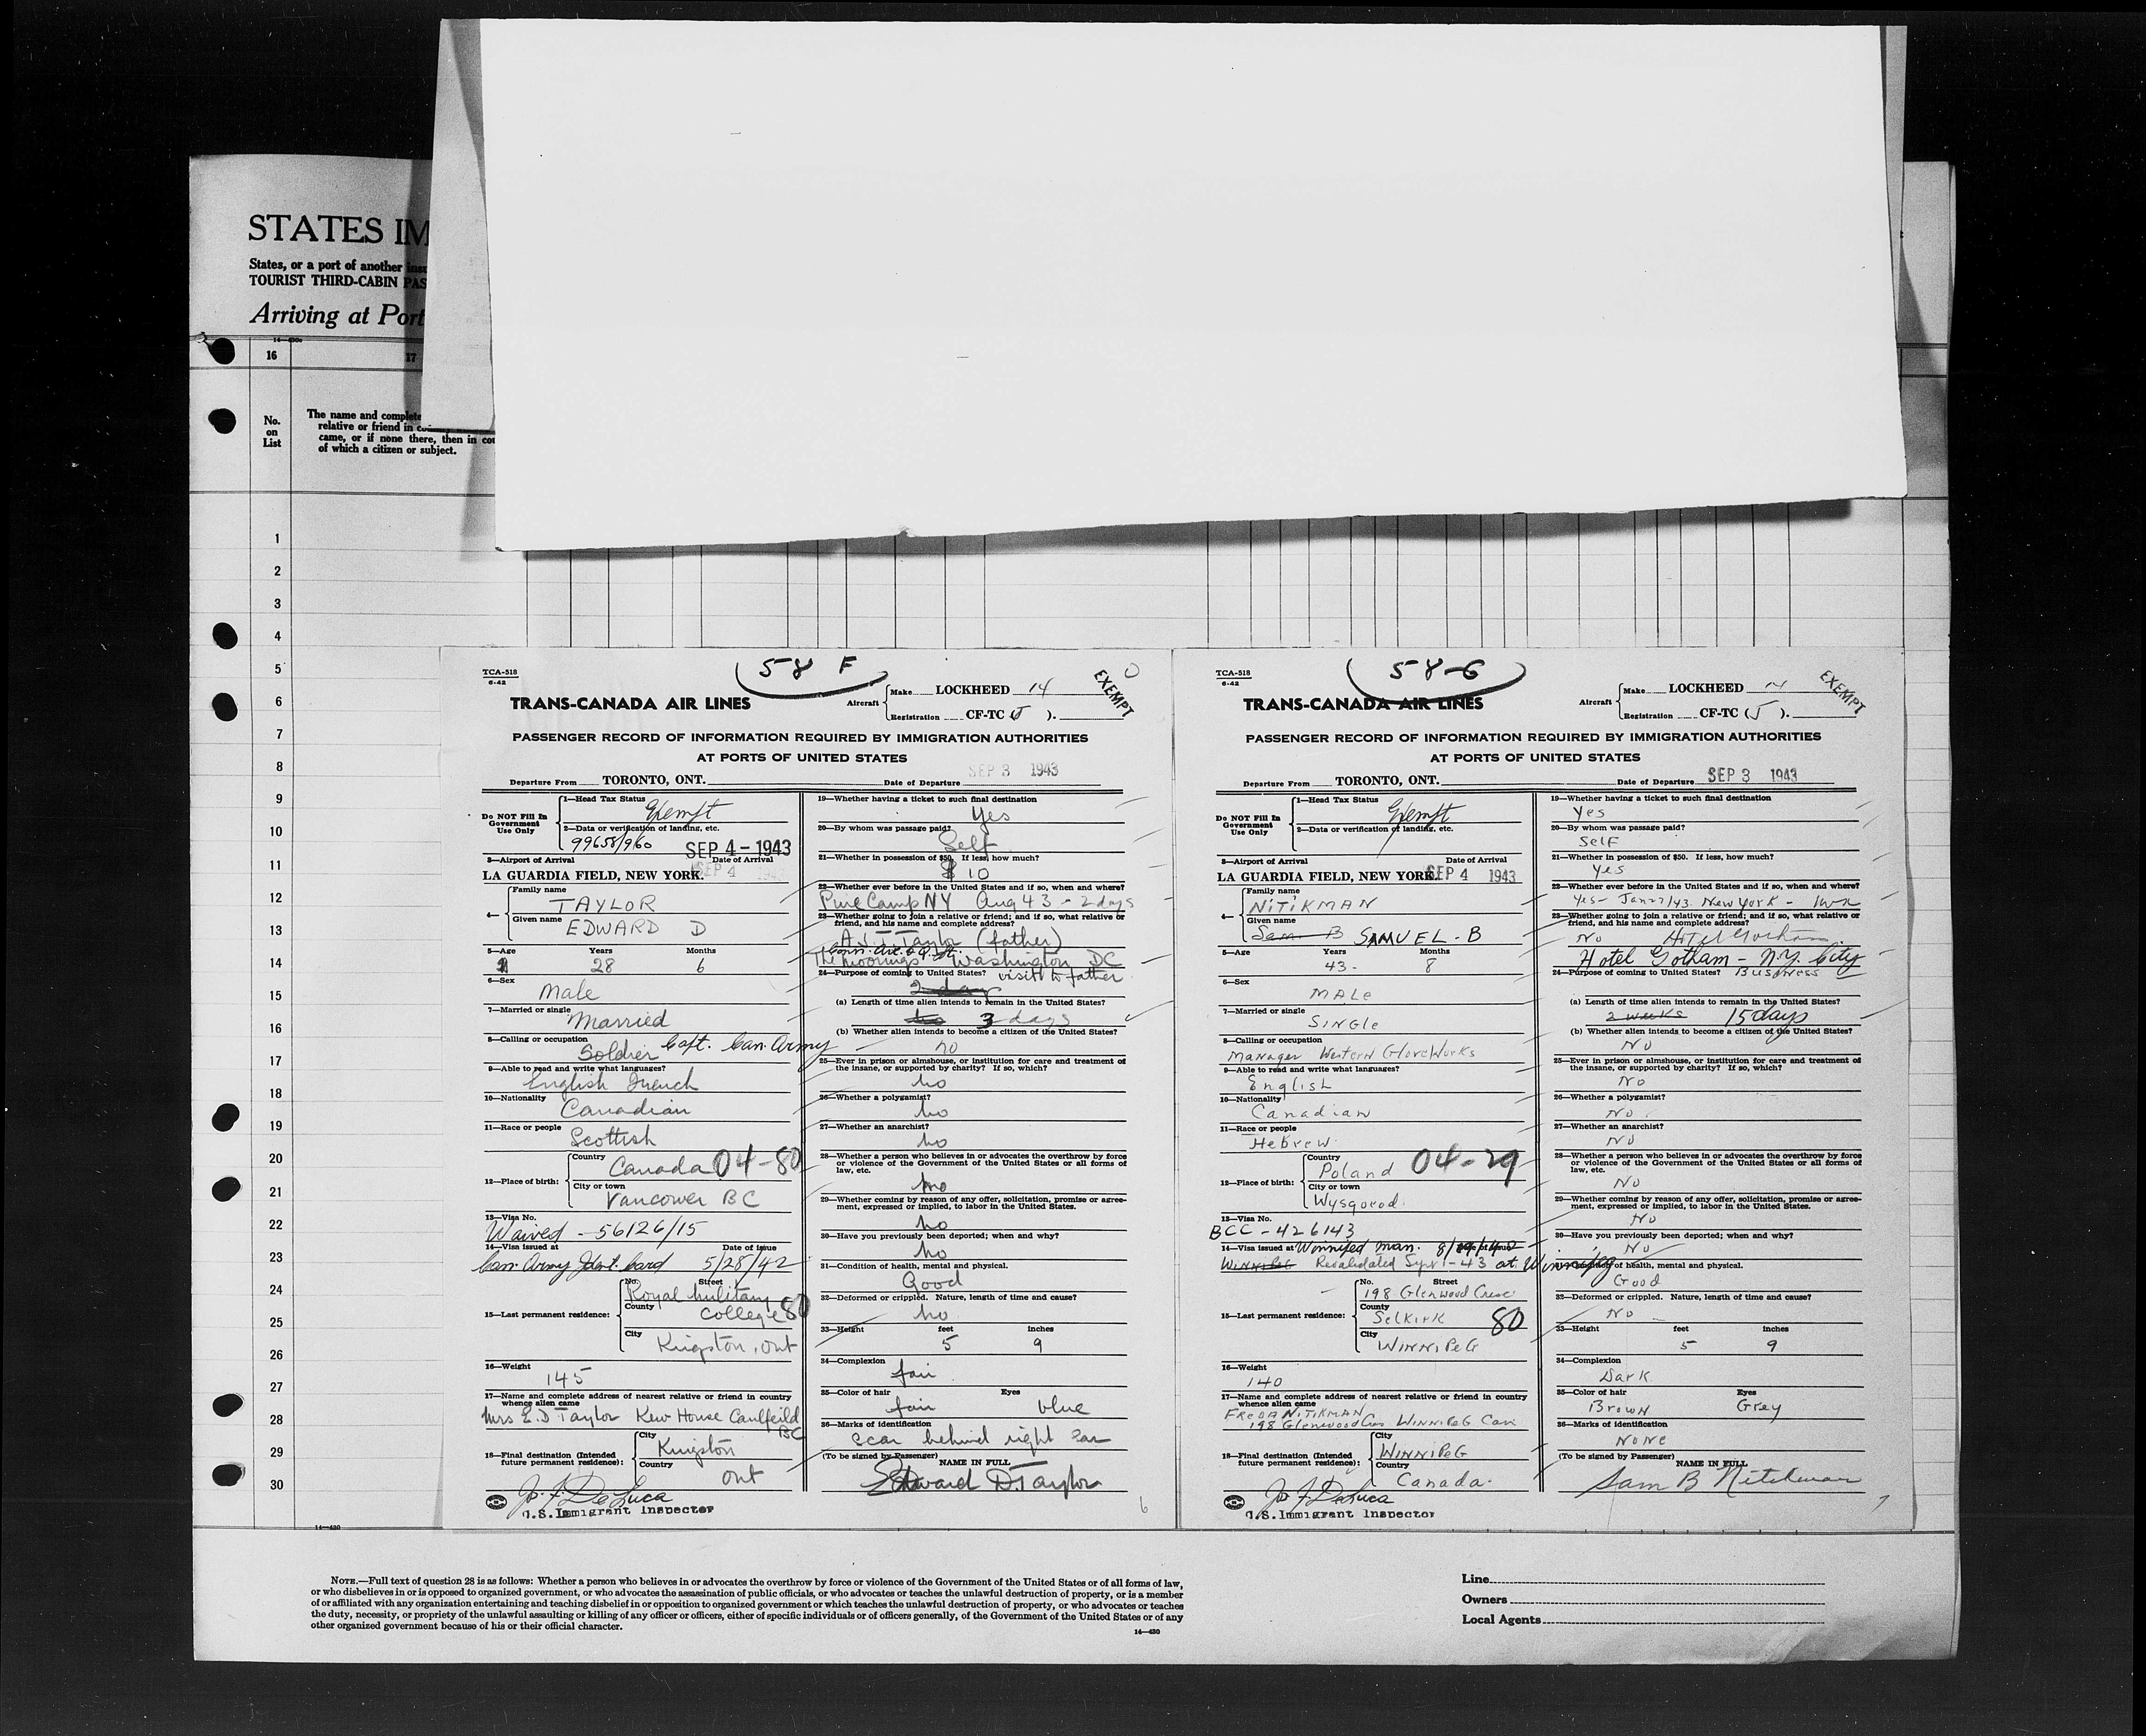 STATES IM
States, or a port of another insu
TOURIST THIRD-CABIN PAS
Arriving at Port
16
17
No.
on
List
The name and complete
relative or friend in
came, or if none there, then in cou
of which a citizen or subject.
1
2
3
4
5
6
7
8
9
10
11
12
13
14
15
16
17
18
19
20
21
22
23
24
25
26
27
28
29
30
TCA-518
6-42
58 F
TRANS-CANADA AIR LINES
Aircraft
Make LOCKHEED 14
Registration CF-TC (J ).
EXEMPT
PASSENGER RECORD OF INFORMATION REQUIRED BY IMMIGRATION AUTHORITIES
AT PORTS OF UNITED STATES
Departure From TORONTO, ONT.
Date of Departure SEP 3 1943
Do NOT Fill In
Government
Use Only
1—Head Tax Status
Exempt
2—Data or verification of landing, etc.
99658/960
SEP 4 - 1943
3—Airport of Arrival
Date of Arrival
LA GUARDIA FIELD, NEW YORK. SEP 4 1943
4—
Family name
TAYLOR
Given name
EDWARD D
5—Age Years Months
28 6
6—Sex
Male
7—Married or single
Married
8—Calling or occupation
Soldier Capt. Can. Army
9—Able to read and write what languages?
English French
10—Nationality
Canadian
11—Race or people
Scottish
12—Place of birth:
Country
Canada 04-80
City or town
Vancouver BC
13—Visa No.
Waived - 56126/15
14—Visa issued at Date of issue
Can. Army Ident. Card 5/28/42
15—Last permanent residence:
No. Street
Royal Military
County
College 80
City
Kingston, Ont
16—Weight
145
17—Name and complete address of nearest relative or friend in country
whence alien came
Mrs E.D Taylor Kew House Caulfeild
BC
18—Final destination (Intended
future permanent residence):
City
Kingston
Country
Ont
Jos. F. DeLuca
U.S. Immigrant Inspector
19—Whether having a ticket to such final destination
Yes
20—By whom was passage paid?
Self
21—Whether in possession of $50. If less, how much?
$10
22—Whether ever before in the United States and if so, when and where?
Pine Camp NY Aug 43 - 2 days
23—Whether going to join a relative or friend; and if so, what relative or
friend, and his name and complete address?
A.J.T. Taylor (father)
The Moorings Washington DC
24—Purpose of coming to United States? visit to father
2 day
(a) Length of time alien intends to remain in the United States?
3 days
(b) Whether alien intends to become a citizen of the United States?
no
25—Ever in prison or almshouse, or institution for care and treatment of
the insane, or supported by charity? If so, which?
no
26—Whether a polygamist?
no
27—Whether an anarchist?
no
28—Whether a person who believes in or advocates the overthrow by force
or violence of the Government of the United States or all forms of
law, etc.
no
29—Whether coming by reason of any offer, solicitation, promise or agree-
ment, expressed or implied, to labor in the United States.
no
30—Have you previously been deported; when and why?
no
31—Condition of health, mental and physical.
Good
32—Deformed or crippled. Nature, length of time and cause?
no
33—Height feet inches
5 9
34—Complexion
fair
35—Color of hair Eyes
fair blue
36—Marks of identification
scar behind right ear
(To be signed by Passenger)
NAME IN FULL
Edward D. Taylor
6
TCA-518
6-42
58-G
TRANS-CANADA AIR LINES
Aircraft
Make LOCKHEED 14
Registration CF-TC (J ).
EXEMPT
PASSENGER RECORD OF INFORMATION REQUIRED BY IMMIGRATION AUTHORITIES
AT PORTS OF UNITED STATES
Departure From TORONTO, ONT.
Date of Departure SEP 3 1943
Do NOT Fill In
Government
Use Only
1—Head Tax Status
Exempt
2—Data or verification of landing, etc.
3—Airport of Arrival
Date of Arrival
LA GUARDIA FIELD, NEW YORK. SEP 4 1943
4—
Family name
NITIKMAN
Given name
Sam B SAMUEL - B
5—Age Years Months
43 - 8
6—Sex
MALe
7—Married or single
SINGle
8—Calling or occupation
Manager Western GloveWorks
9—Able to read and write what languages?
English
10—Nationality
Canadian
11—Race or people
Hebrew
12—Place of birth:
Country
Poland 04-29
City or town
Wysgorod
13—Visa No.
BCC - 426143
14—Visa issued at Winnipeg Man.
Winnipeg Revalidated Sept 1-43 at Winnipeg
15—Last permanent residence:
No. Street
198 Glenwood Cresc
County
Selkirk 80
City
WINNIPEG
16—Weight
140
17—Name and complete address of nearest relative or friend in country
whence alien came
FREDA NITIKMAN
198 Glenwood Cres WINNIPEG Can
18—Final destination (Intended
future permanent residence):
City
WINNIPEG
Country
Canada.
Jos F DeLuca
U.S. Immigrant Inspector
19—Whether having a ticket to such final destination
Yes
20—By whom was passage paid?
Self
21—Whether in possession of $50. If less, how much?
Yes
22—Whether ever before in the United States and if so, when and where?
Yes - Jan 27/43. New York -
23—Whether going to join a relative or friend; and if so, what relative or
friend, and his name and complete address?
No Hotel Gotham
Hotel Gotham - N.Y. City
24—Purpose of coming to United States? Business
(a) Length of time alien intends to remain in the United States?
2 weeks 15 days
(b) Whether alien intends to become a citizen of the United States?
No
25—Ever in prison or almshouse, or institution for care and treatment of
the insane, or supported by charity? If so, which?
No
26—Whether a polygamist?
No
27—Whether an anarchist?
No
28—Whether a person who believes in or advocates the overthrow by force
or violence of the Government of the United States or all forms of
law, etc.
No
29—Whether coming by reason of any offer, solicitation, promise or agree-
ment, expressed or implied, to labor in the United States.
No
30—Have you previously been deported; when and why?
No
of health, mental and physical.
Good
32—Deformed or crippled. Nature, length of time and cause?
No
33—Height feet inches
5 9
34—Complexion
Dark
35—Color of hair Eyes
Brown Grey
36—Marks of identification
None
(To be signed by Passenger)
NAME IN FULL
Sam B Nitikman
7
14—430
NOTE.—Full text of question 28 is as follows: Whether a person who believes in or advocates the overthrow by force or violence of the Government of the United States or of all forms of law,
or who disbelieves in or is opposed to organized government, or who advocates the assassination of public officials, or who advocates or teaches the unlawful destruction of property, or is a member
of or affiliated with any organization entertaining and teaching disbelief in or opposition to organized government or which teaches the unlawful destruction of property, or who advocates or teaches
the duty, necessity, or propriety of the unlawful assaulting or killing of any officer or officers, either of specific individuals or of officers generally, of the Government of the United States or of any
other organized government because of his or their official character.
14—430
Line
Owners
Local Agents